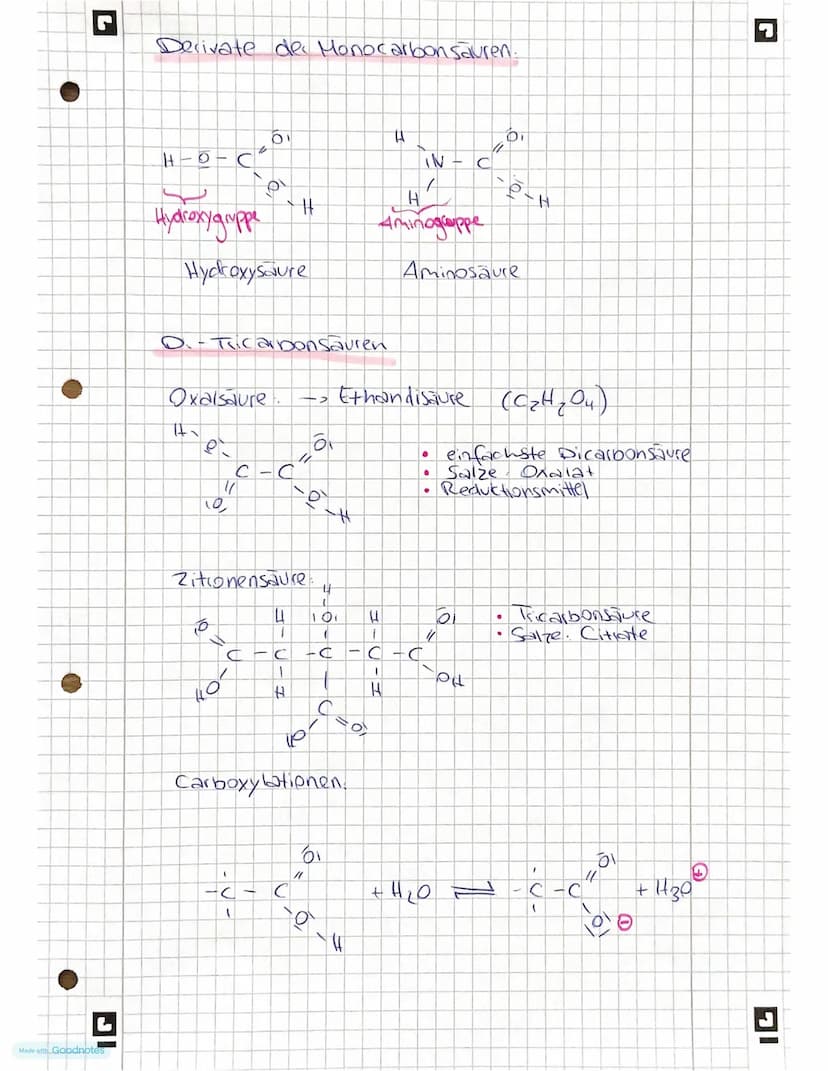 Derivate der Monocarbonsäuren.
Hydroxygruppe
Aminogruppe
Hydroxysäure
Aminosäure
Di-Tricarbonsäuren
Oxalsäure: -> Ethandisäure (C2H2O4)
einfachste Dicarbonsäure
Salze: Oxalat
Reduktionsmittel
Zitronensäure:
Tricarbonsäure
Salze: Citrate
Carboxylationen:
+ H2O ⇌
+ H3O⊕
Made with Goodnotes